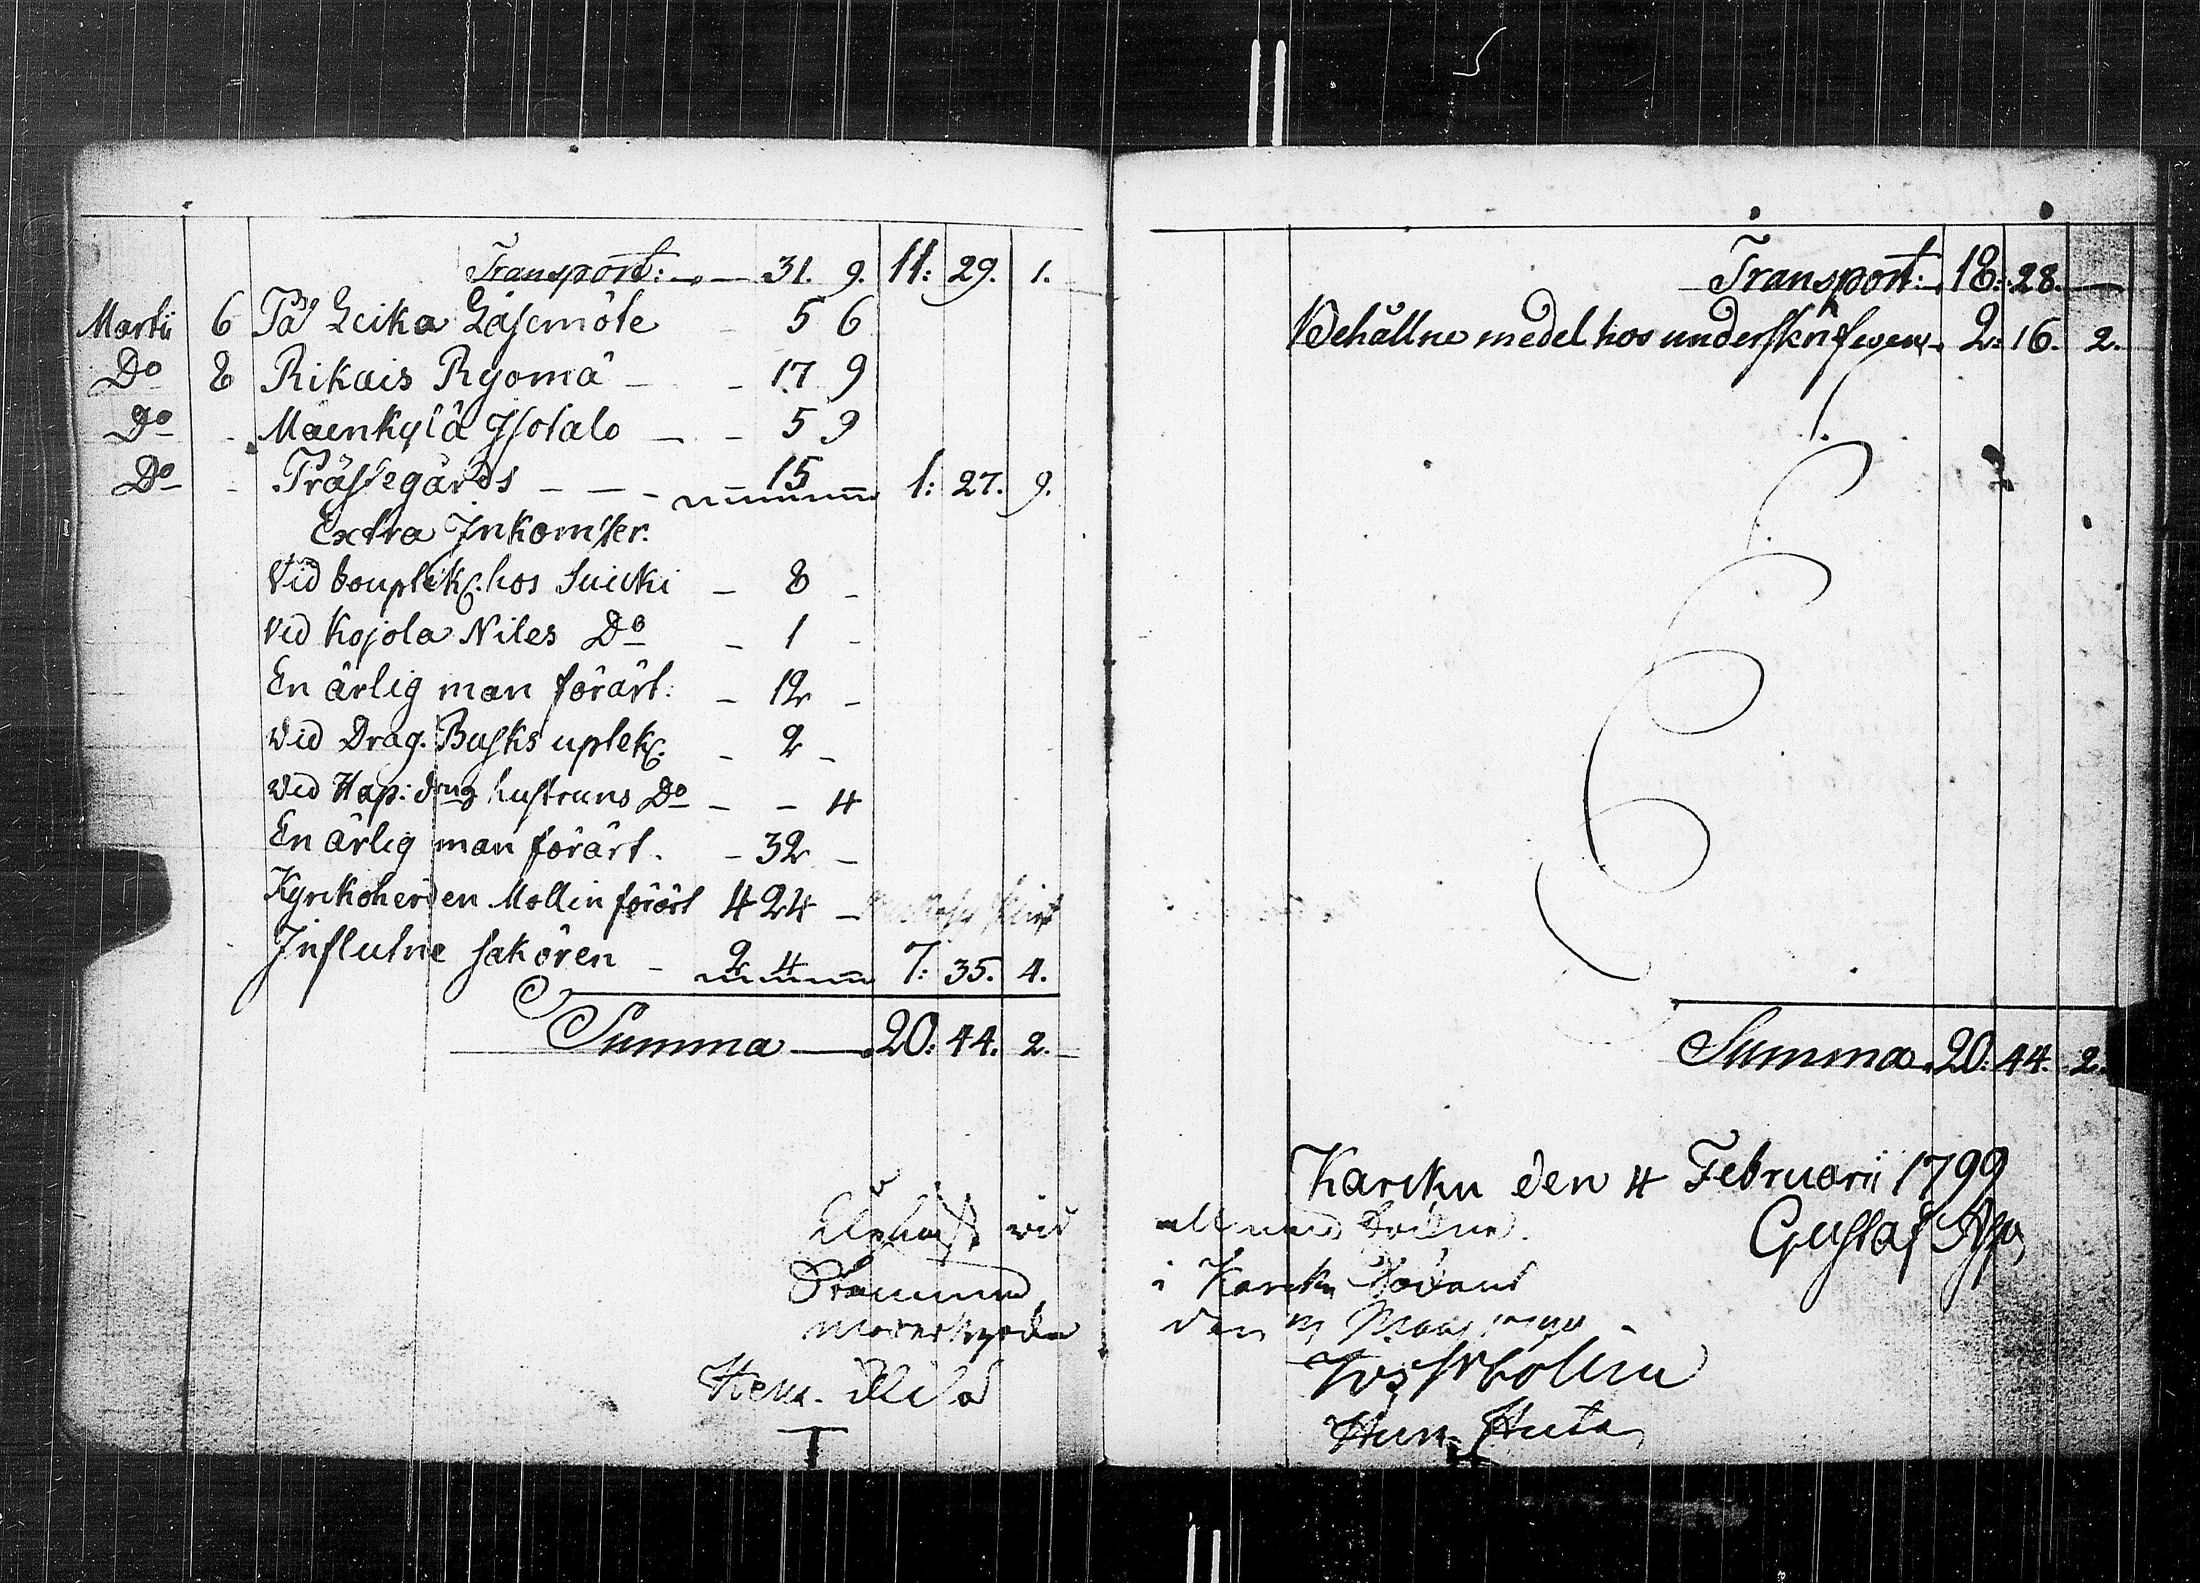 Transport: 31. 9. 11: 29. 1.
Martii 6 På Leika Läsemöte - 5 6
Do 8 Rikais Ryömä - - 17 9
Do - Mäenkylä Isotalo - - 5 9
Do - Prästegårds - - - 15 1: 27. 9.
Extra Inkomster.
Vid bouptekn. hos - 8 -
Vid Kojola Niles Do - 1 -
En ärlig man förärt. - 12 -
Vid Drag. Busks uptekn. - 2 -
Vid hustruns Do - - 4
En ärlig man förärt. - 32 -
Kyrkoherden Mollin förärt 4 24 -
Influtne sakören - 2 4 7: 35. 4.
Summa 20: 44. 2.
vid
Hem.
Transport: 18: 28. -
Behållne medel hos underskrifven 2: 16. 2.
Summa 20: 44. 2.
Karcku den 4 Februarii 1799
Gustaf
i Karcku
den